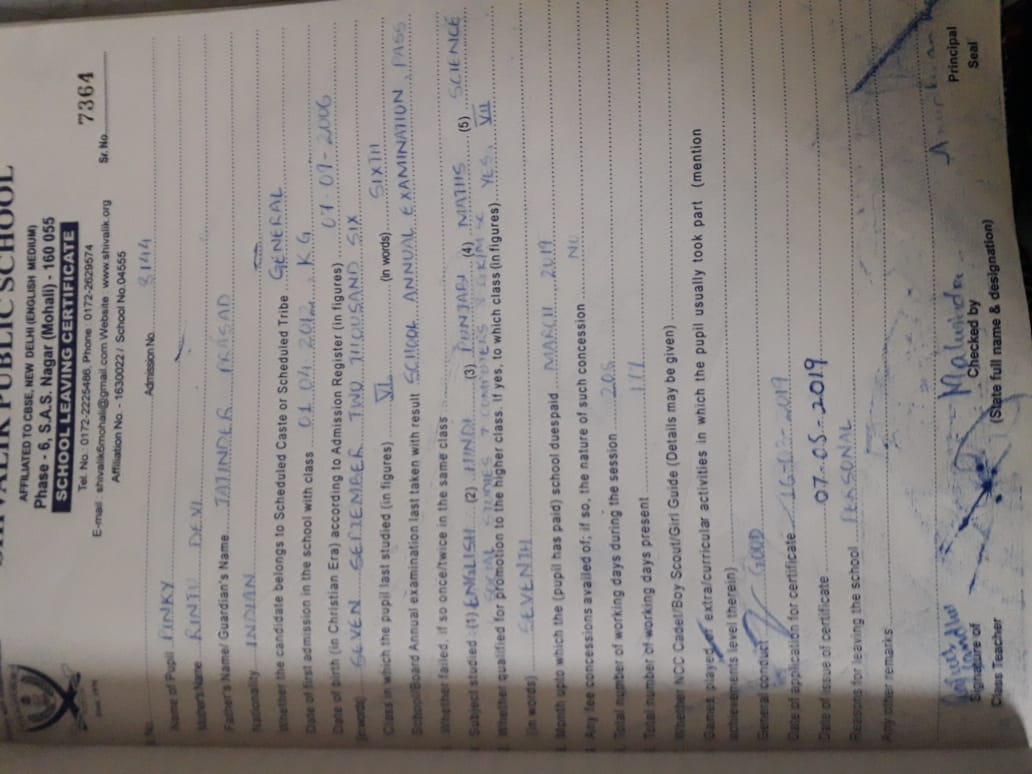 SHIVALIK PUBLIC SCHOOL
AFFILIATED TO CBSE, NEW DELHI (ENGLISH MEDIUM)
Phase - 6, S.A.S. Nagar (Mohali) - 160 055
SCHOOL LEAVING CERTIFICATE
Tel. No. 0172-2225486, Phone : 0172-2629574
E-mail : shivalik6mohali@gmail.com Website www.shivalik.org
Affiliation No. - 1630022 / School No.04555
Sr. No. 7364
Admission No. 8144
Name of Pupil PINKY
Mother's Name RINTU DEVI
Father's Name/ Guardian's Name JATINDER PRASAD
Nationality INDIAN
Whether the candidate belongs to Scheduled Caste or Scheduled Tribe GENERAL
Date of first admission in the school with class 01 04 2012, K.G
Date of birth (in Christian Era) according to Admission Register (in figures) 07 09-2006
(in words) SEVEN SEPTEMBER TWO THOUSAND SIX
Class in which the pupil last studied (in figures) VI (in words) SIXTH
School/Board Annual examination last taken with result SCHOOL ANNUAL EXAMINATION, PASS
Whether failed, if so once/twice in the same class
Subject studied : (1) ENGLISH (2) HINDI (3) PUNJABI (4) MATHS (5) SCIENCE
SOCIAL STUDIES 7 COMPUTERS
Whether qualified for promotion to the higher class. If yes, to which class (in figures) YES, VII
(in words) SEVENTH
Month upto which the (pupil has paid) school dues paid MARCH 2019
Any fee concessions availed of; if so, the nature of such concession NO
Total number of working days during the session 205
Total number of working days present 177
Whether NCC Cadet/Boy Scout/Girl Guide (Details may be given)
Games played or extra/curricular activities in which the pupil usually took part (mention
achievements level therein)
General conduct GOOD
Date of application for certificate 2019
Date of issue of certificate 07-05-2019
Reasons for leaving the school PERSONAL
Any other remarks
Signature of
Class Teacher
Malwinder
Checked by
(State full name & designation)
Principal
Seal